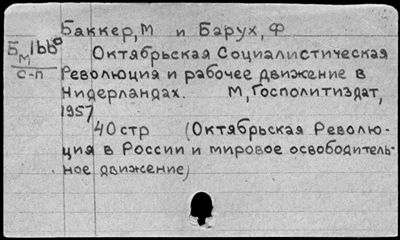 Баккер, М и Барух, Ф
Б 1bb
М
с-п
Октябрьская Социалистическая
Революция и рабочее движение в
Нидерландах. М, Госполитиздат,
1957
40 стр (Октябрьская Револю-
ция в России и мировое освободитель-
ное движение)